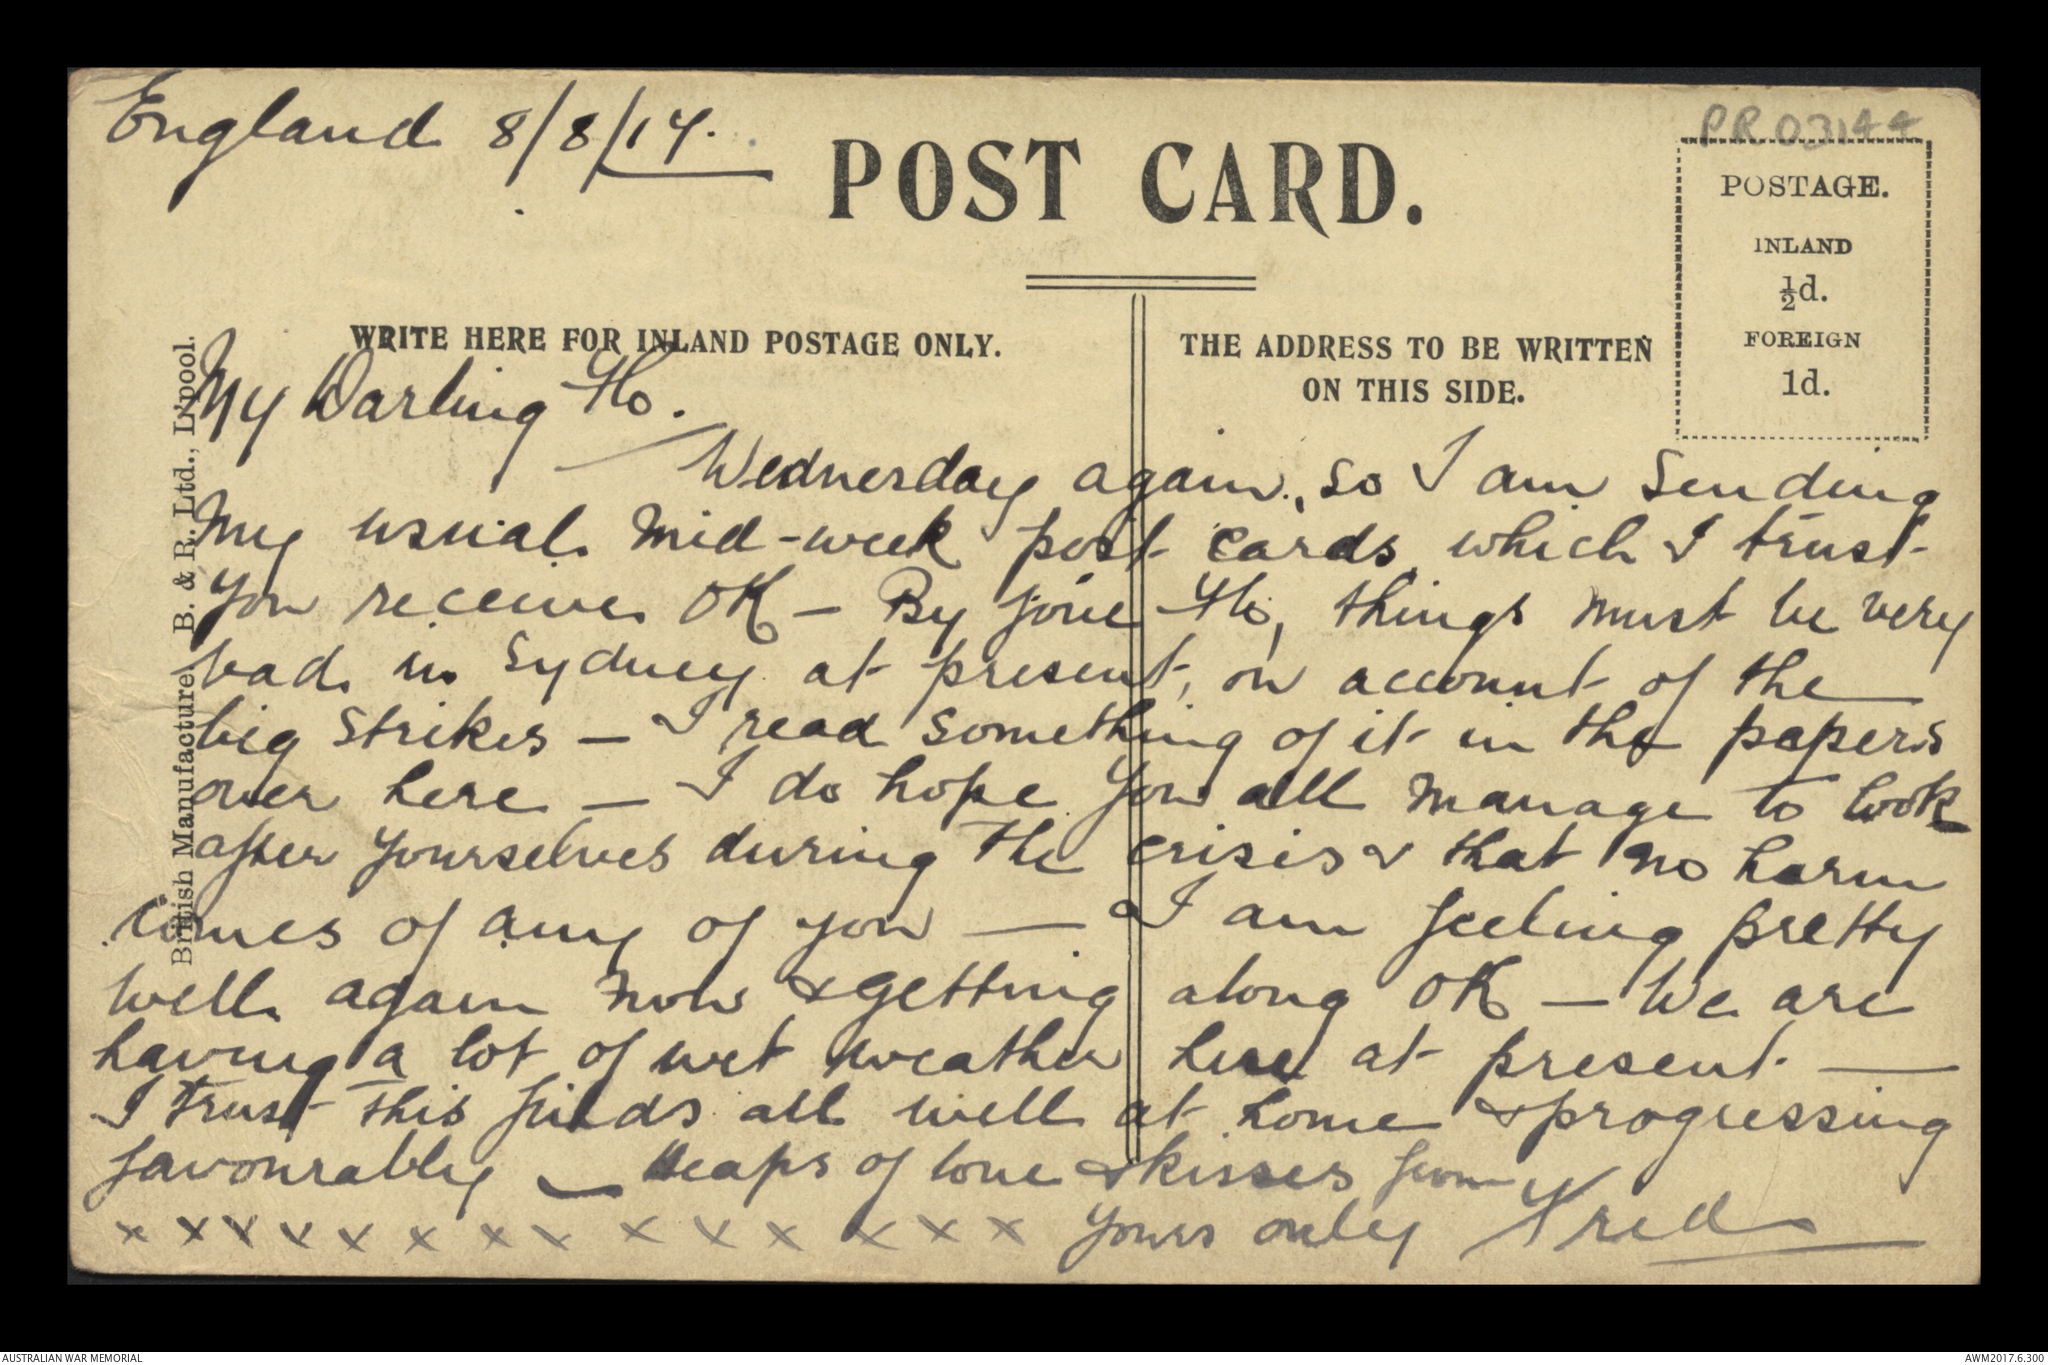 England 8/8/17.
PR03144
POST CARD.
POSTAGE.
INLAND
½d.
FOREIGN
1d.
WRITE HERE FOR INLAND POSTAGE ONLY.
THE ADDRESS TO BE WRITTEN
ON THIS SIDE.
British Manufacture. B. & R. Ltd., L'pool.
My Darling Flo.
Wednesday again, so I am sending
my usual mid-week post cards which I trust
you receive OK – By Jove Flo, things must be very
bad in Sydney at present, on account of the
big strikes – I read something of it in the papers
over here – I do hope you all manage to look
after yourselves during the crisis & that no harm
comes of any of you – I am feeling pretty
well again now & getting along OK – We are
having a lot of wet weather here at present –
I trust this finds all well at home & progressing
favourably – Heaps of love & kisses from
x x x x x x x x x x x x x x Yours only Fred
AUSTRALIAN WAR MEMORIAL
AWM2017.6.300